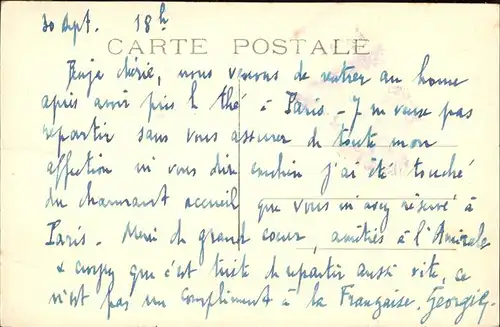 30 Sept. 18h
CARTE POSTALE
chérie, nous venons de rentrer au home
après avoir pris le thé à Paris - Je ne veux pas
repartir sans vous assurer de toute mon
affection ni vous dire combien j'ai été touché
du charmant accueil que vous m'avez réservé à
Paris. Merci de grand cœur, amitiés à l'Amirale
& croyez que c'est triste de repartir aussi vite, ce
n'est pas un compliment à la Française. Georges